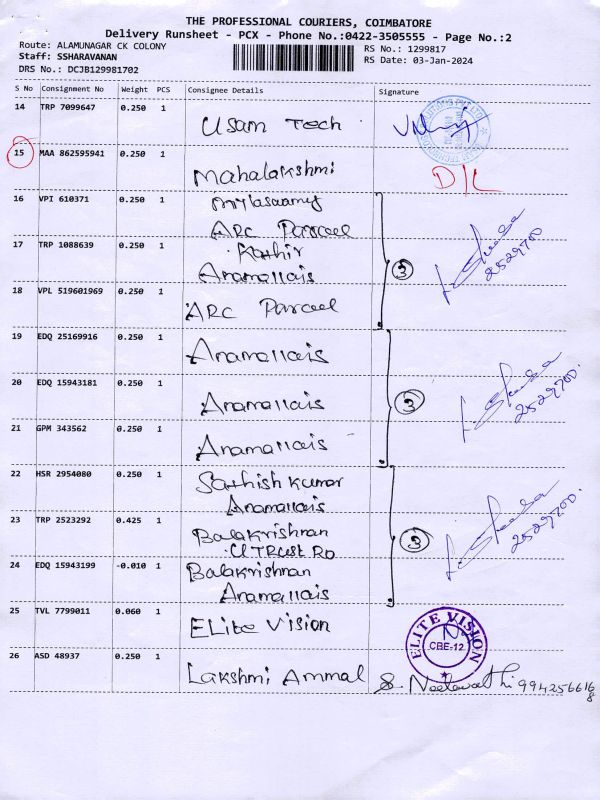 THE PROFESSIONAL COURIERS, COIMBATORE
Delivery Runsheet - PCX - Phone No.:0422-3505555 - Page No.:2
Route: ALAMUNAGAR CK COLONY
RS No.: 1299817
Staff: SSHARAVANAN
RS Date: 03-Jan-2024
DRS No.: DCJB129981702
S No Consignment No Weight PCS Consignee Details Signature
14 TRP 7099647 0.250 1
Usam Tech
15 MAA 862595941 0.250 1
Mahalakshmi D/L
16 VPI 610371 0.250 1 Mylasaamy
ARC Parcel
17 TRP 1088639 0.250 1 Kathir
Anamallais
3
252970D
18 VPL 519601969 0.250 1
ARC Parcel
19 EDQ 25169916 0.250 1
Anamallais
20 EDQ 15943181 0.250 1
Anamallais
3
252970D.
21 GPM 343562 0.250 1
Anamallais
22 HSR 2954080 0.250 1 Sathish kumar
Anamallais
23 TRP 2523292 0.425 1 Balakrishnan
UTRUST RD
3
252970D.
24 EDQ 15943199 -0.010 1 Balakrishnan
Anamallais
25 TVL 7799011 0.060 1
Elite Vision
ELITE VISION
CBE-12
26 ASD 48937 0.250 1
Lakshmi Ammal S. Neelavathi